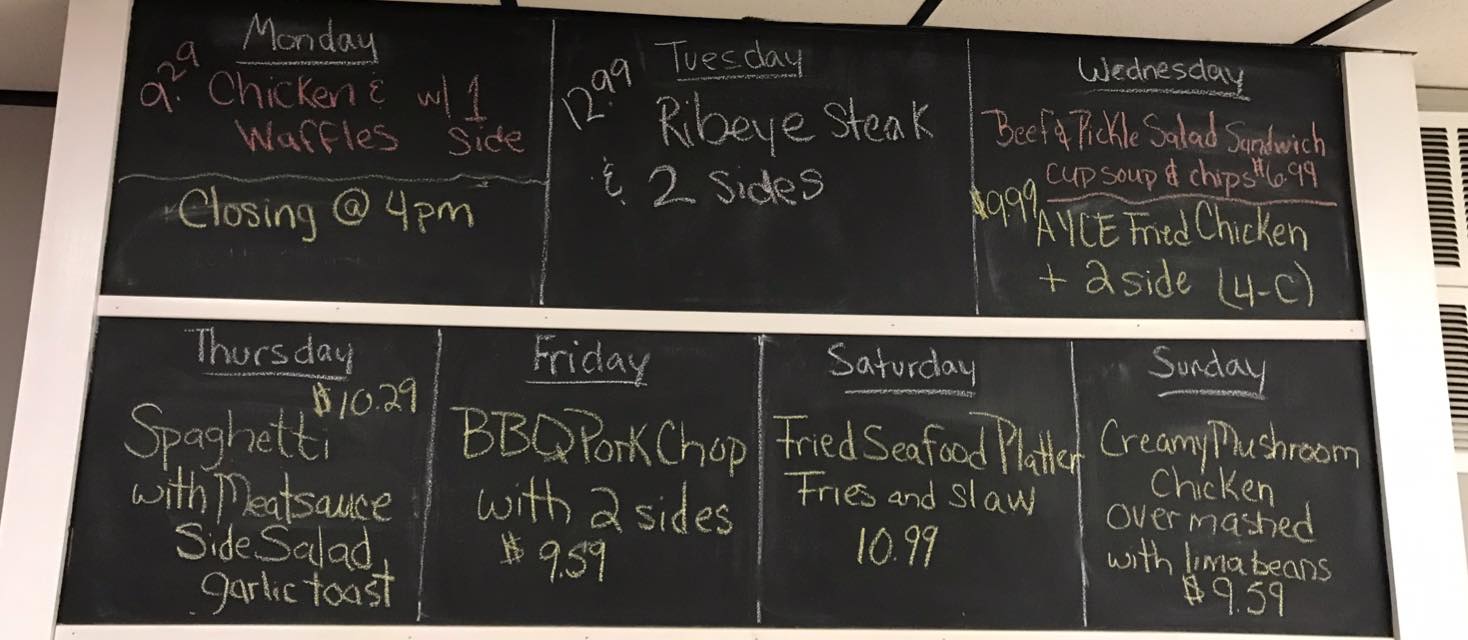 Monday
9.29 Chicken & w/ 1
Waffles Side
Closing @ 4pm
Tuesday
12.99
Ribeye Steak
& 2 Sides
Wednesday
Beef & Pickle Salad Sandwich
cup soup & chips $6.99
$9.99 AYCE Fried Chicken
+ 2 side (4-C)
Thursday
$10.29
Spaghetti
with Meatsauce
Side Salad
garlic toast
Friday
BBQ Pork Chop
with 2 sides
$9.59
Saturday
Fried Seafood Platter
Fries and slaw
10.99
Sunday
Creamy Mushroom
Chicken
over mashed
with lima beans
$9.59